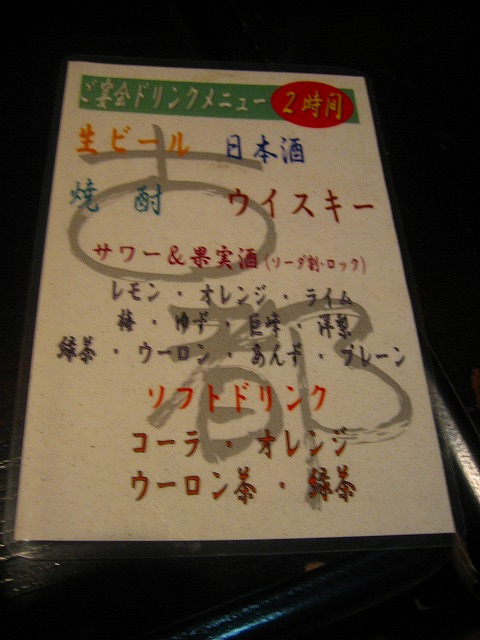 ご宴会ドリンクメニュー 2時間
生ビール 日本酒
焼酎 ウイスキー
サワー&果実酒(ソーダ割・ロック)
レモン・オレンジ・ライム
梅・ゆず・巨峰・洋梨
緑茶・ウーロン・あんず・プレーン
ソフトドリンク
コーラ・オレンジ
ウーロン茶・緑茶